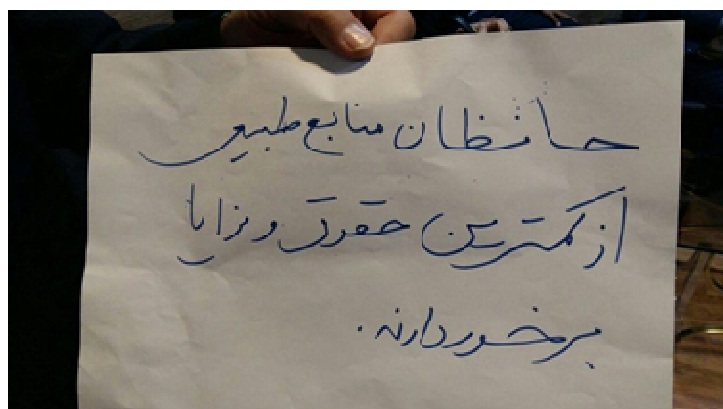 حافظان منابع طبیعی
از کمترین حقوق و مزایا
برخوردارند.